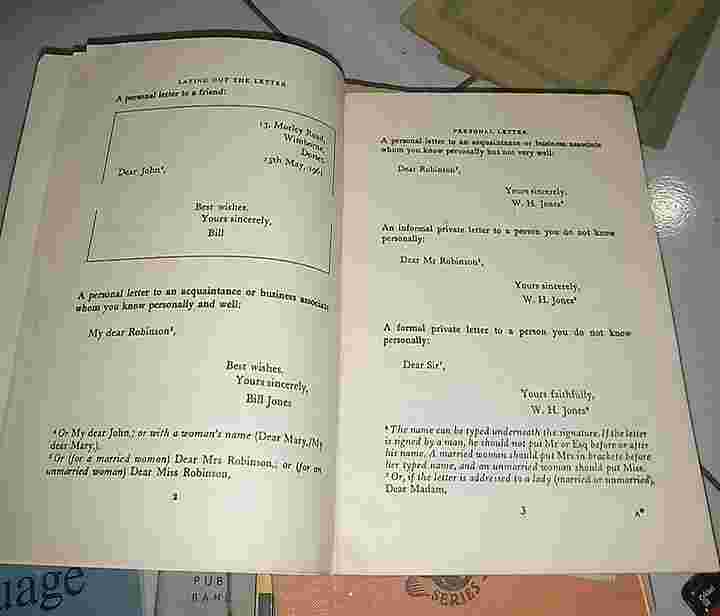 LAYING OUT THE LETTER
A personal letter to a friend:
13, Morley Road,
Wimborne,
Dorset.
15th May, 1961
Dear John⁴,
Best wishes.
Yours sincerely,
Bill
A personal letter to an acquaintance or business associate
whom you know personally and well:
My dear Robinson⁵,
Best wishes.
Yours sincerely,
Bill Jones
⁴ Or My dear John,; or with a woman's name (Dear Mary,/My
dear Mary,).
⁵ Or (for a married woman) Dear Mrs Robinson,; or (for an
unmarried woman) Dear Miss Robinson,
2
PERSONAL LETTER
A personal letter to an acquaintance or business associate
whom you know personally but not very well:
Dear Robinson⁵,
Yours sincerely,
W. H. Jones⁶
An informal private letter to a person you do not know
personally:
Dear Mr Robinson⁵,
Yours sincerely,
W. H. Jones⁶
A formal private letter to a person you do not know
personally:
Dear Sir⁷,
Yours faithfully,
W. H. Jones⁶
⁶ The name can be typed underneath the signature. If the letter
is signed by a man, he should not put Mr or Esq before or after
his name. A married woman should put Mrs in brackets before
her typed name, and an unmarried woman should put Miss.
⁷ Or, if the letter is addressed to a lady (married or unmarried),
Dear Madam,
3
A*
uage
PUB
BANG
SERIES